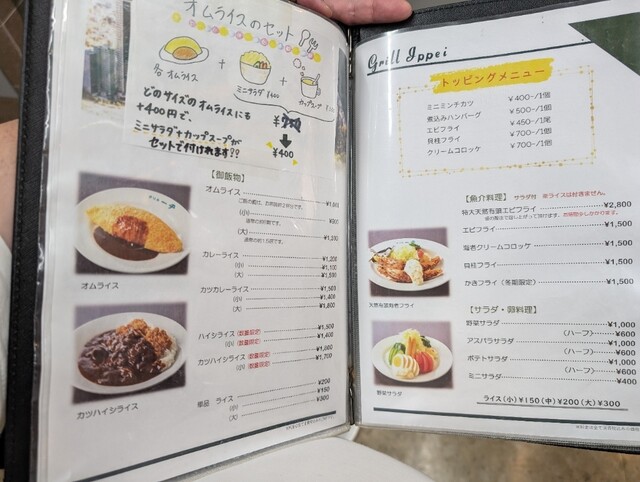 オムライスのセット
各 オムライス
+
ミニサラダ ¥400
+
カップスープ
どのサイズのオムライスにも
+400円で、
ミニサラダ+カップスープが
セットで付けれます!!
¥400
【御飯物】
オムライス
(小)
(大)
カレーライス ¥1,200
(小) ¥1,100
(大)
カツカレーライス ¥1,500
(小) ¥1,400
(大) ¥1,800
ハイシライス(数量限定) ¥1,500
(小)(数量限定) ¥1,400
カツハイシライス(数量限定)
(小)(数量限定) ¥1,700
単品 ライス ¥200
(小) ¥150
(大) ¥300
オムライス
カツハイシライス
Grill Ippei
トッピングメニュー
ミニミンチカツ ¥400-/1個
煮込みハンバーグ ¥500-/1個
エビフライ ¥450-/1尾
貝柱フライ ¥700-/1個
クリームコロッケ ¥700-/1個
【魚介料理】 サラダ付 ※ライスは付きません。
特大天然有頭エビフライ ¥2,800
エビフライ ¥1,500
海老クリームコロッケ ¥1,500
貝柱フライ ¥1,500
かきフライ(冬期限定) ¥1,500
天然有頭海老フライ
【サラダ・卵料理】
野菜サラダ ¥1,000
(ハーフ) ¥600
アスパラサラダ ¥1,000
(ハーフ) ¥600
ポテトサラダ ¥1,000
(ハーフ) ¥600
ミニサラダ ¥400
野菜サラダ
ライス(小)¥150(中)¥200(大)¥300